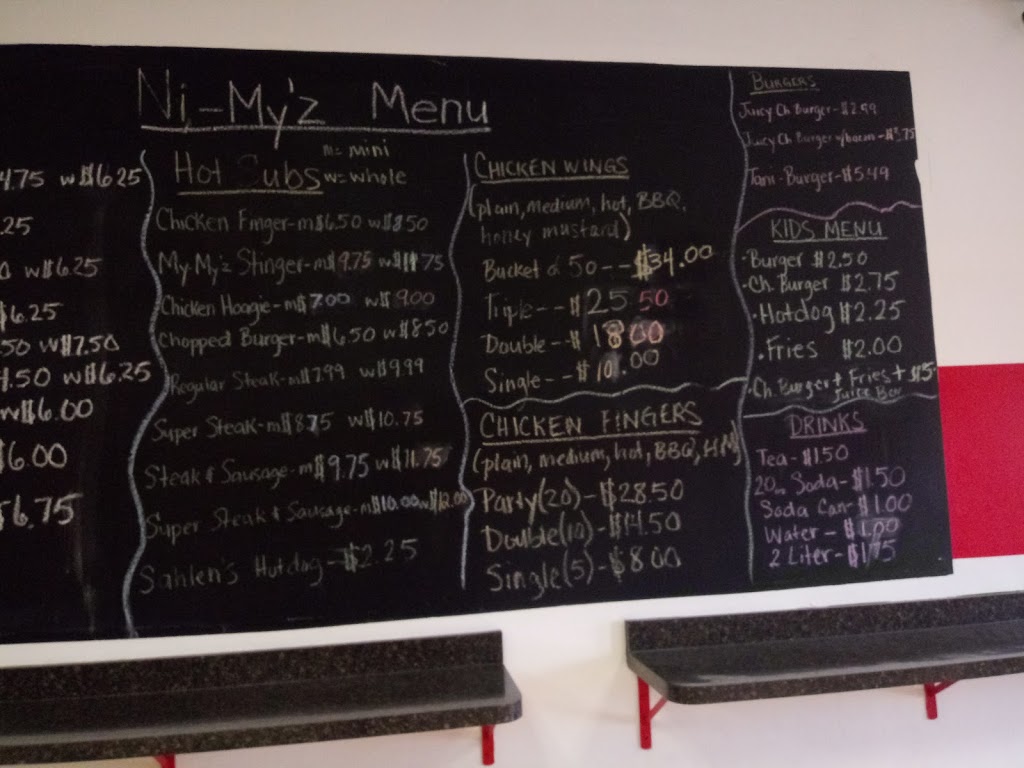 Ni-My'z Menu
4.75 w$6.25
.25
w$6.25
$6.25
.50 w$7.50
4.50 w$6.25
w$6.00
$6.00
$6.75
Hot Subs
m= mini
w= whole
Chicken Finger-m$6.50 w$8.50
My-My'z Stinger-m$9.75 w$11.75
Chicken Hoagie-m$7.00 w$9.00
Chopped Burger-m$6.50 w$8.50
Regular Steak-m$7.99 w$9.99
Super Steak-m$8.75 w$10.75
Steak & Sausage-m$9.75 w$11.75
Super Steak & Sausage-m$10.00 w$12.00
Sahlen's Hotdog-$2.25
CHICKEN WINGS
(plain, medium, hot, BBQ,
honey mustard)
Bucket of 50--$34.00
Triple--$25.50
Double--$18.00
Single--$10.00
CHICKEN FINGERS
(plain, medium, hot, BBQ, HM)
Party(20)-$28.50
Double(10)-$14.50
Single(5)-$8.00
BURGERS
Juicy Ch. Burger-$2.99
Juicy Ch. Burger w/bacon-$3.75
Tani-Burger-$5.49
KIDS MENU
·Burger $2.50
·Ch. Burger $2.75
·Hotdog $2.25
·Fries $2.00
·Ch. Burger + Fries + $5-
Juice Box
DRINKS
Tea-$1.50
20oz Soda-$1.50
Soda Can-$1.00
Water-$1.00
2 Liter-$1.75